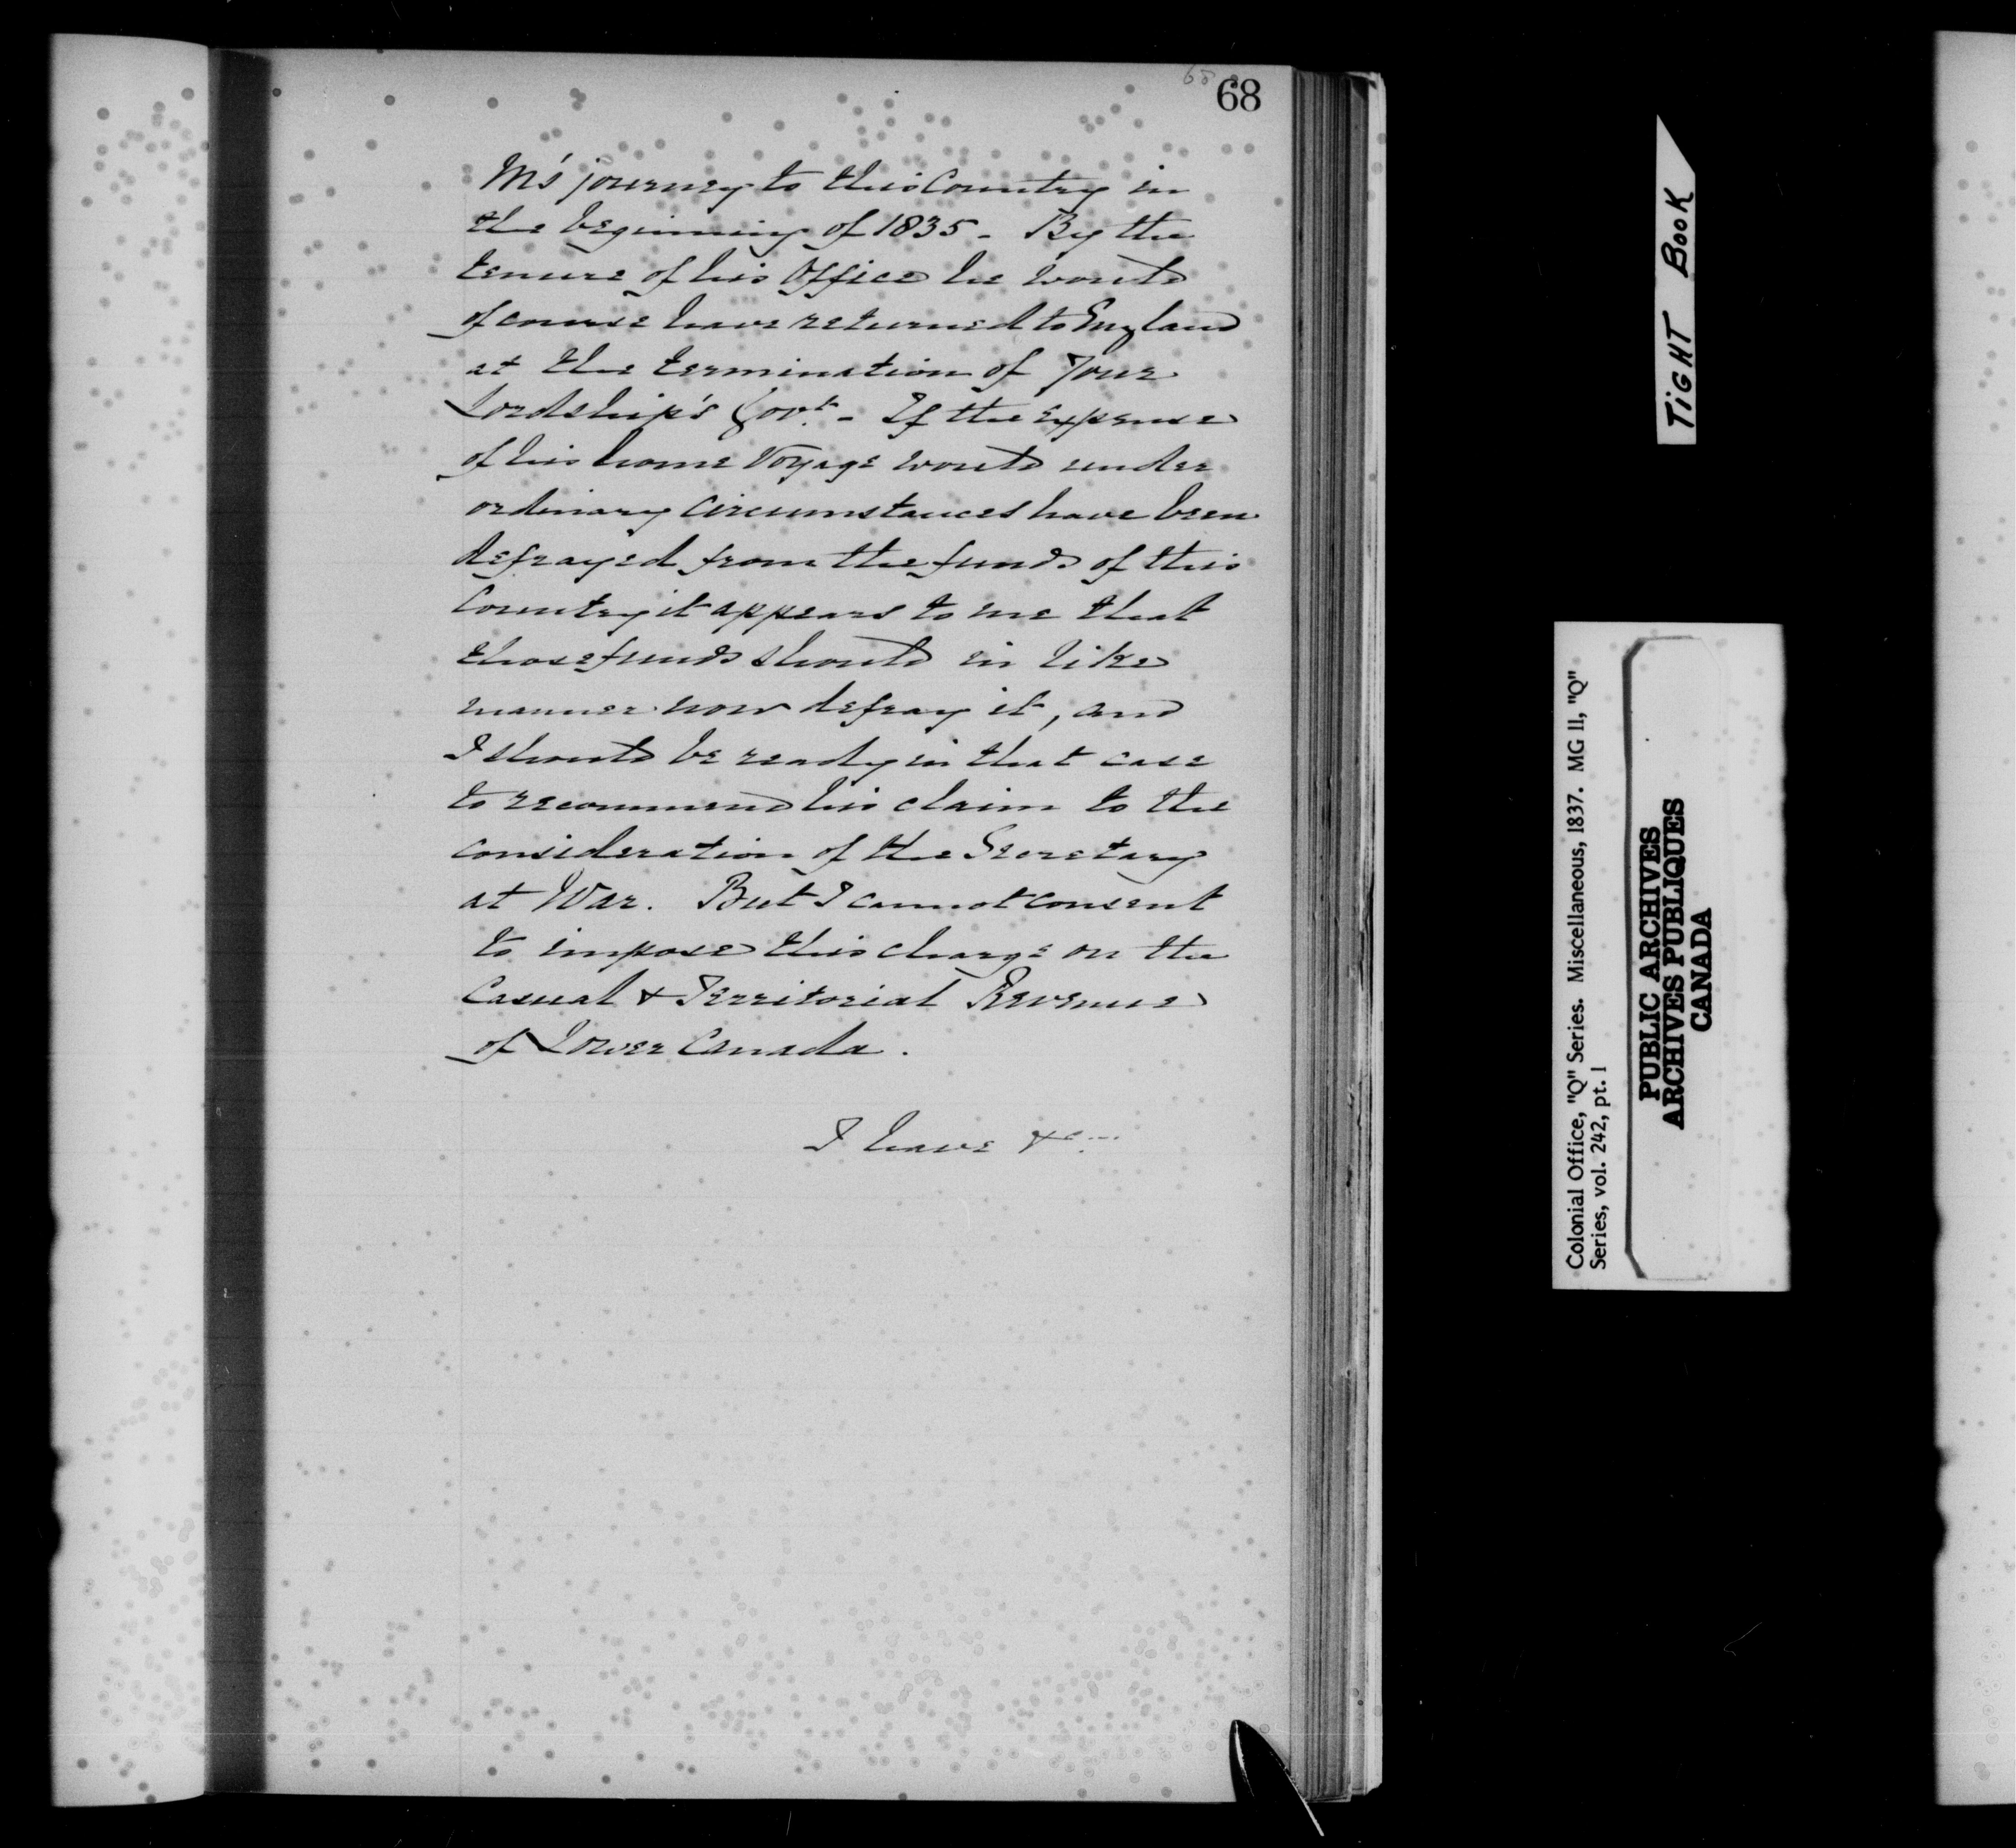 68
68
M's journey to this Country in
the beginning of 1835 - By the
tenure of his Office he would
of course have returned to England
at the termination of Your
Lordship's Govt. - If the expense
of his home Voyage would under
ordinary circumstances have been
defrayed from the funds of this
Country it appears to me that
those funds should in like
manner now defray it, and
I should be ready in that case
to recommend his claim to the
consideration of the Secretary
at War. But I cannot consent
to impose this charge on the
Casual & Territorial Revenue
of Lower Canada.
I have &c...
TIGHT BOOK
Colonial Office, "Q" Series. Miscellaneous, 1837. MG 11, "Q"
Series, vol. 242, pt. 1
PUBLIC ARCHIVES
ARCHIVES PUBLIQUES
CANADA